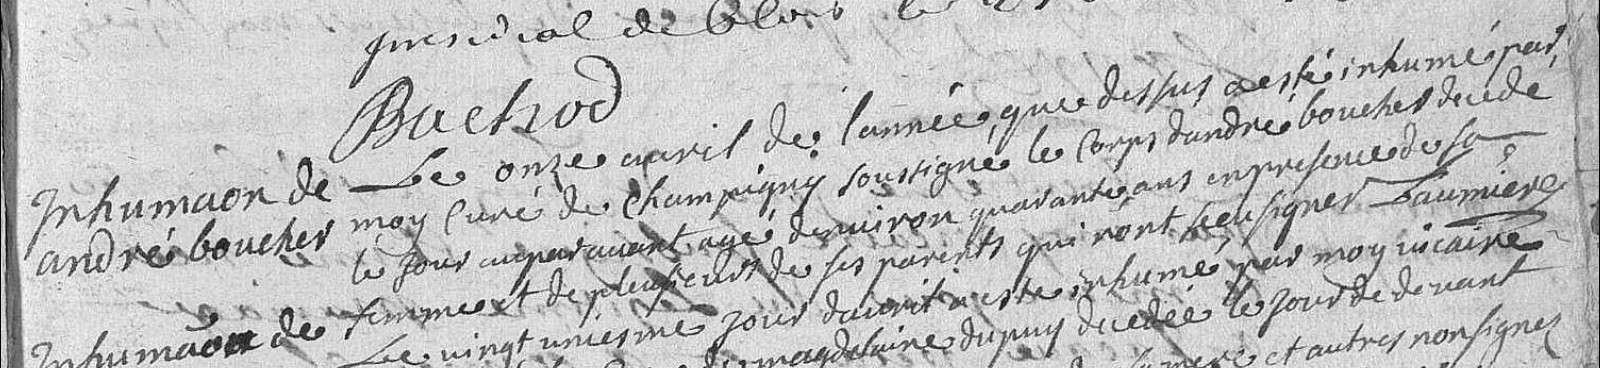 presidial de blois le
Bachod
Inhumaon de
andré boucher
Le onze auril de lannée que dessus a esté inhumé par
moy Curé de Champigny soussigné le corps dandré boucher decede
le jour auparauant agé denuiron quarante ans en presence de sa
femme et de plusieurs de ses parents qui nont sceu signer Laumiere
Inhumaon de
Le vingt uniesme jour dauril a este inhumé par moy uicaire
magdelaine dupuy decedée le jour de deuant
mere et autres non signez